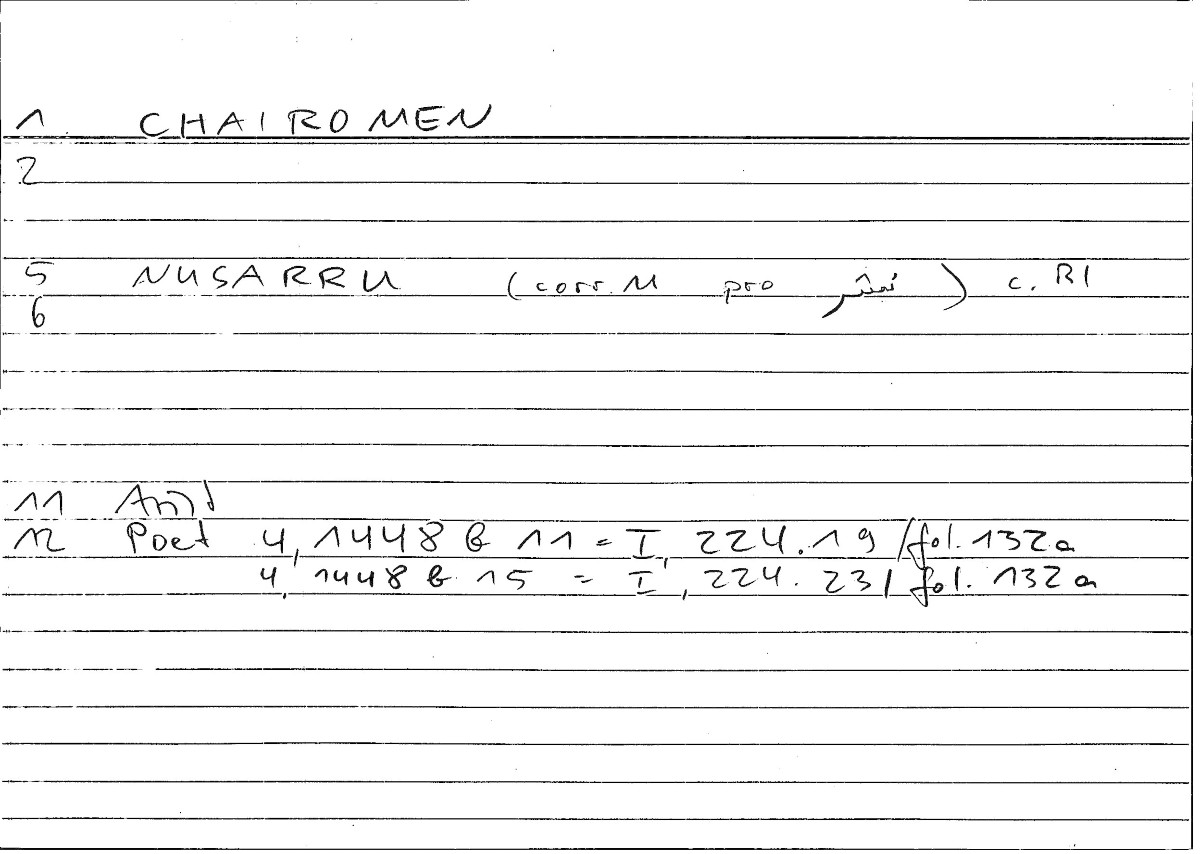 1 CHAIROMEN
2
5 NUSARRU (corr. M pro نفشر) c. RI
6
11
12 Poet 4, 1448 b 11 = I, 224.19 / fol. 132a
4, 1448 b 15 = I, 224.23 / fol. 132a